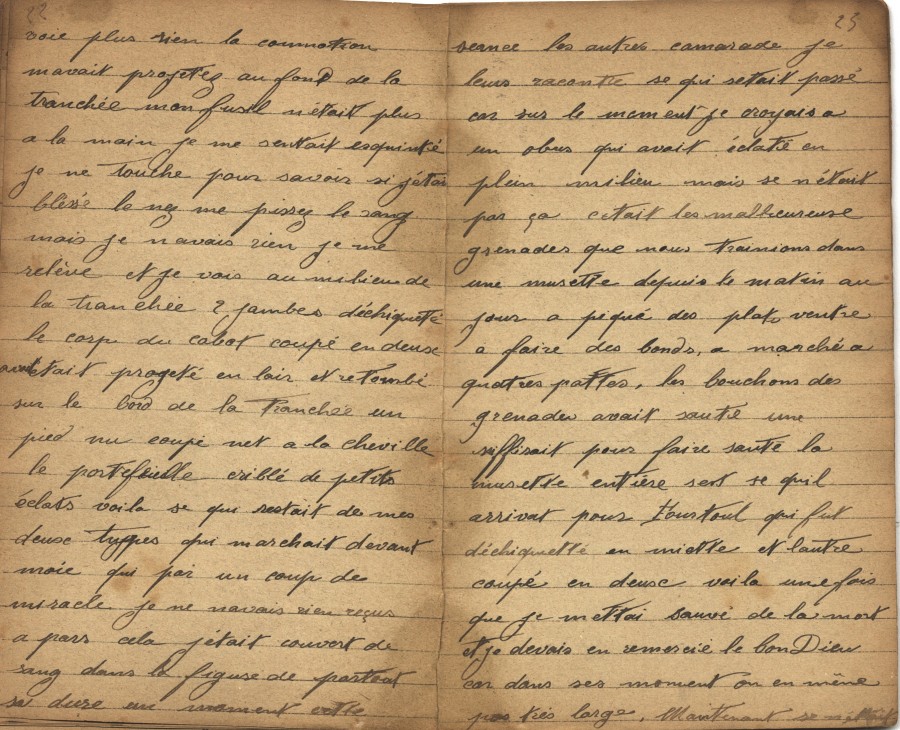 22
voie plus rien la commotion
mavait projetez au fond de la
tranchée mon fusil nétait plus
a la main je me sentait esquinté
je me touche pour savoir si jétai
bléssé le nez me pissez le sang
mais je navais rien je me
relève et je vois au milieu de
la tranchée 2 jambes déchiqueté
le corp du cabot coupé en deux
avait était projeté en lair et retombé
sur le bord de la tranchée un
pied nu coupé net a la cheville
le portefeuille criblé de petits
éclats voila se qui restait de mes
deux types qui marchait devant
moie qui par un coup de
miracle je ne navais rien reçus
a pars cela jétait couvert de
sang dans la figure de partout
sa dure un moment
23
les autres camarade je
leurs racontre se qui setait passé
car sur le moment je croyais a
un obus qui avait éclaté en
plein milieu mais se nétait
par ça cétait les malheureuse
grenades que nous trainions dans
une musette depuis le matin au
jour a piqué des plat ventre
a faire des bonds, a marché a
quatres pattes, les bouchons des
grenades avait sauté une
siffisait pour faire sauté la
musette entière sest se quil
arrivat pour qui fut
déchiquetté en miette et lautre
coupé en deux voila une fois
que je mettai sauvé de la mort
et je devais en remercié le bon Dieu
car dans ses moment on en mène
pas très large, Maintenant